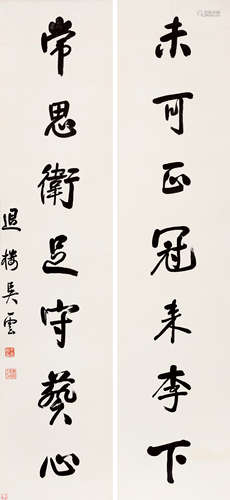 未可正冠来李下
常思衛足守葵心
退樓吴雲